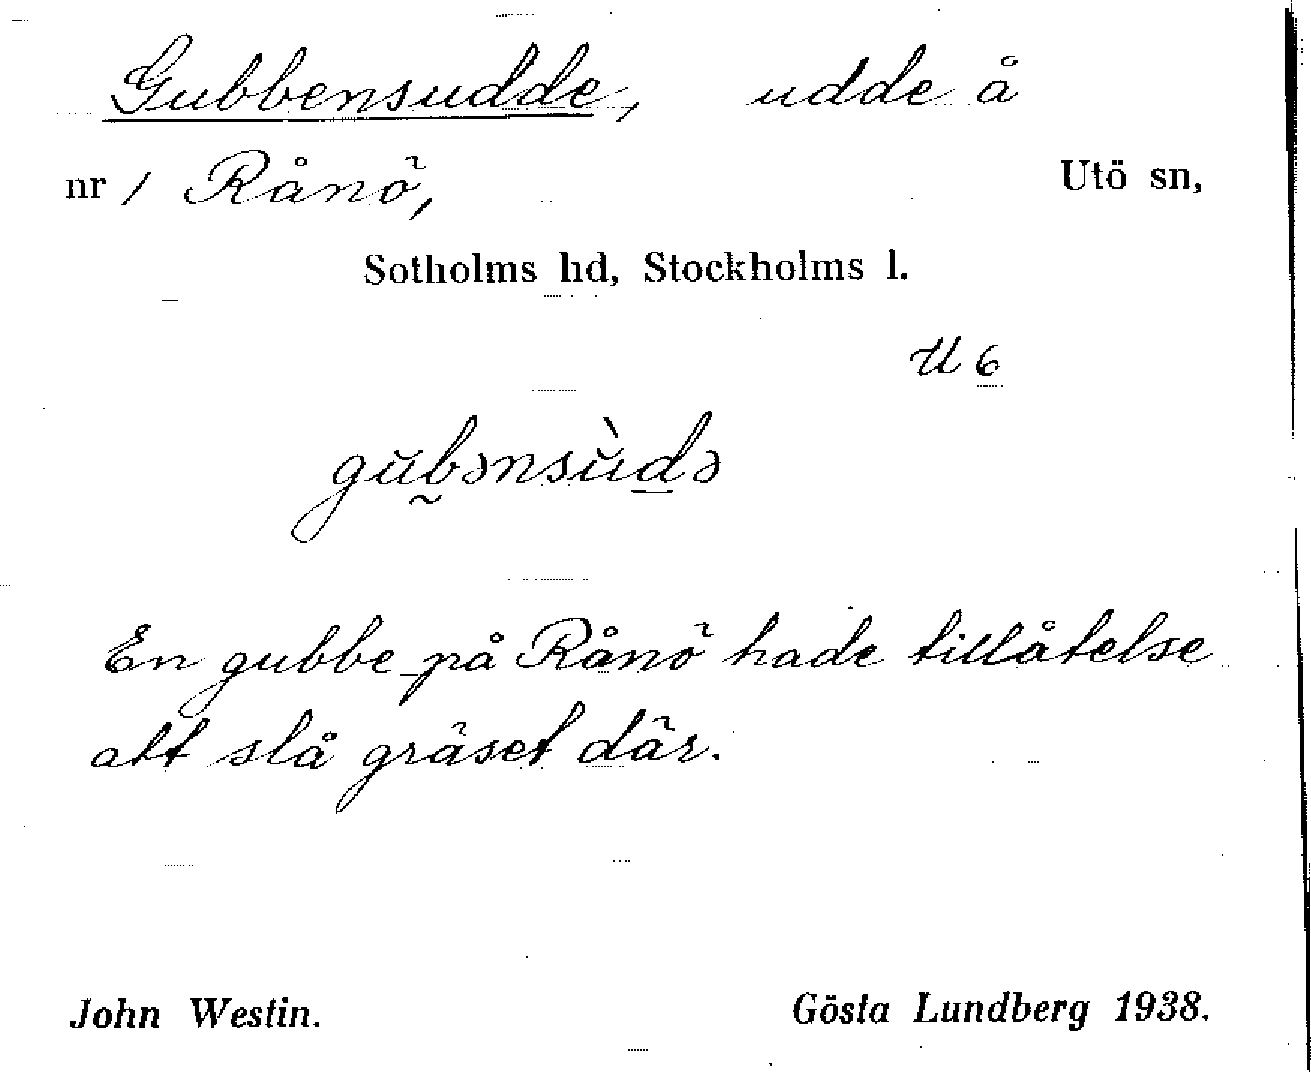 Gubbensudde, udde å
nr 1 Rånö, Utö sn,
Sotholms hd, Stockholms l.
U 6
gŭb̰ənsùd̲ə
En gubbe på Rånö hade tillåtelse
att slå gräset där.
John Westin. Gösta Lundberg 1938.